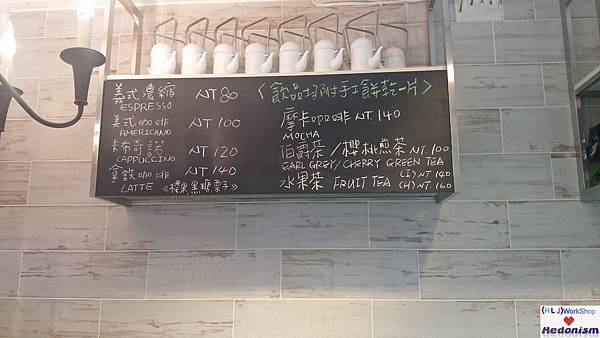 義式濃縮 NT 80
ESPRESSO
美式咖啡 NT 100
AMERICANO
卡布奇諾 NT 120
CAPPUCCINO
拿鐵咖啡 NT 140
LATTE 《榛果 黑糖 栗子》
〈飲品均附手工餅乾一片〉
摩卡咖啡 NT 140
MOCHA
伯爵茶/櫻桃煎茶 NT. 100
EARL GREY/CHERRY GREEN TEA
水果茶 FRUIT TEA (I) NT 140
(H) NT 160
(HLJ)WorkShop
Hedonism